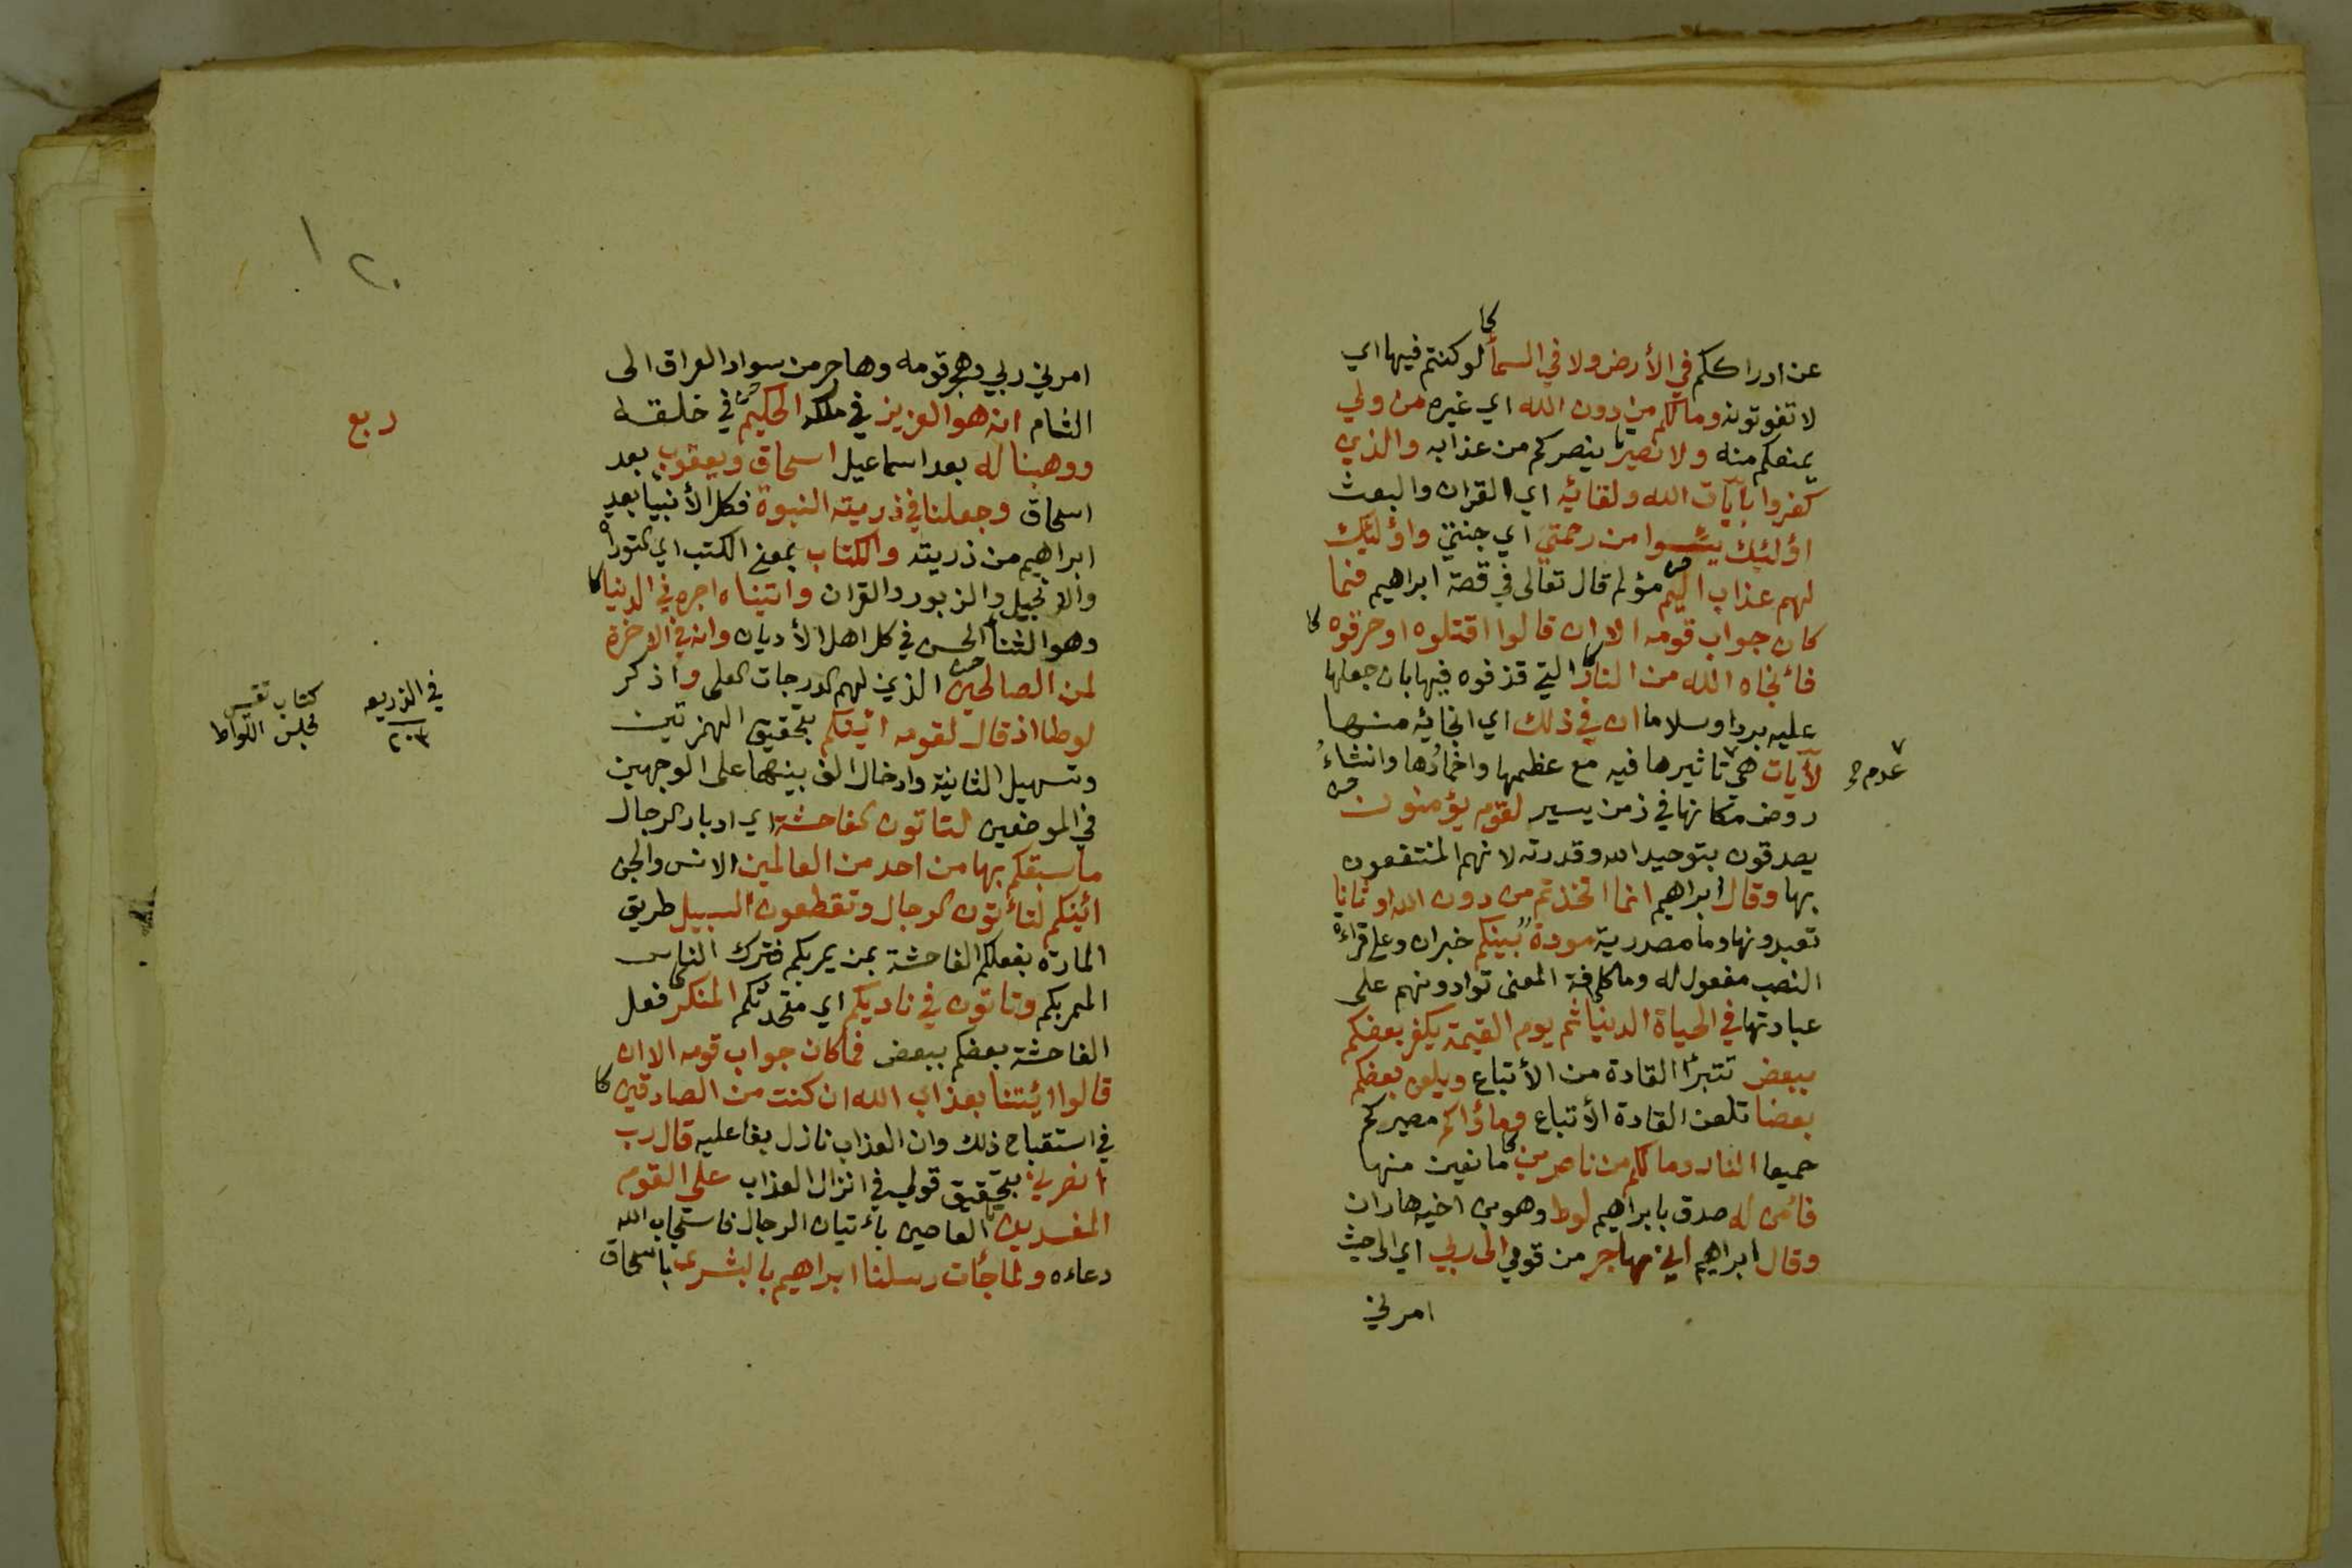 عن ادراككم في الأرض ولا في السمآ لو كنتم فيها اي
لا تفوتونه وما لكم من دون الله اي غيره من ولي
يمنعكم منه ولا نصير ينصركم من عذابه والذين
كفروا بآيآت الله ولقائه اي القران والبعث
اؤلئك يئسوا من رحمتي اي جنتي واؤلئك
لهم عذاب اليم مؤلم قال تعالى في قصة ابراهيم فما
كان جواب قومه الا ان قالوا اقتلوه او حرقوه
فأنجاه الله من النار التي قذفوه فيها بان جعلها
عليه بردا وسلاما ان في ذلك اي انجائه منها
لآيآت هي تاثيرها فيه مع عظمها واخمادُها وانشاءُ
عدم
روض مكانها في زمن يسير لقوم يؤمنون
يصدقون بتوحيد الله وقدرته لانهم المنتفعون
بها وقال ابراهيم انما اتخذتم من دون الله اوثانا
تعبدونها وما مصدرية مودة بينكم خبران وعلى قراءة
النصب مفعول له وما كافة المعنى توادونهم على
عبادتها في الحياة الدنيا ثم يوم القيمة يكفر بعضكم
ببعض تتبرأ القادة من الأتباع ويلعن بعضكم
بعضا تلعن القادة الأتباع ومأواكم مصيركم
جميعا النار وما لكم من ناصرين مانعين منها
فأمن له صدق بابراهيم لوط وهو بن اخيه هاران
وقال ابراهيم اني مهاجر من قومي الى ربي اي الى حيث
امرني
٢٠١
امرني ربي وهجر قومه وهاجر من سواد العراق الى
الشام انه هو العزيز في ملكه الحكيم في خلقه
ربع
ووهبنا له بعد اسماعيل اسحاق ويعقوب بعد
اسحاق وجعلنا في ذريته النبوة فكل الأنبيا بعد
ابراهيم من ذريته والكتاب بمعنى الكتب اي التوراة
والانجيل والزبور والقران واتيناه اجره في الدنيا
وهو الثنأ الحسن في كل اهل الأديان وانه في الاخرة
لمن الصالحين الذين لهم الدرجات العلى واذكر
في الذريعه
٢٠٣
كتاب
اللواط
لوطا اذ قال لقومه ائنكم بتحقيق الهمزتين
وتسهيل الثانية وادخال الف بينهما على الوجهين
في الموضعين لتاتون الفاحشة اي ادبار الرجال
ما سبقكم بها من احد من العالمين الانس والجن
ائنكم لتأتون الرجال وتقطعون السبيل طريق
المارة بفعلكم الفاحشة بمن يمر بكم فترك الناس
الممر بكم وتاتون في ناديكم اي متحدثكم المنكر فعل
الفاحشة بعضكم ببعض فما كان جواب قومه الا ان
قالوا ائيتنا بعذاب الله ان كنت من الصادقين
في استقباح ذلك وان العذاب نازل بفاعليه قال رب
انصرني بتحقيق قولي في انزال العذاب على القوم
المفسدين العاصين بأتيان الرجال فاستجاب الله
دعاءه ولما جأت رسلنا ابراهيم بالبشرى باسحاق